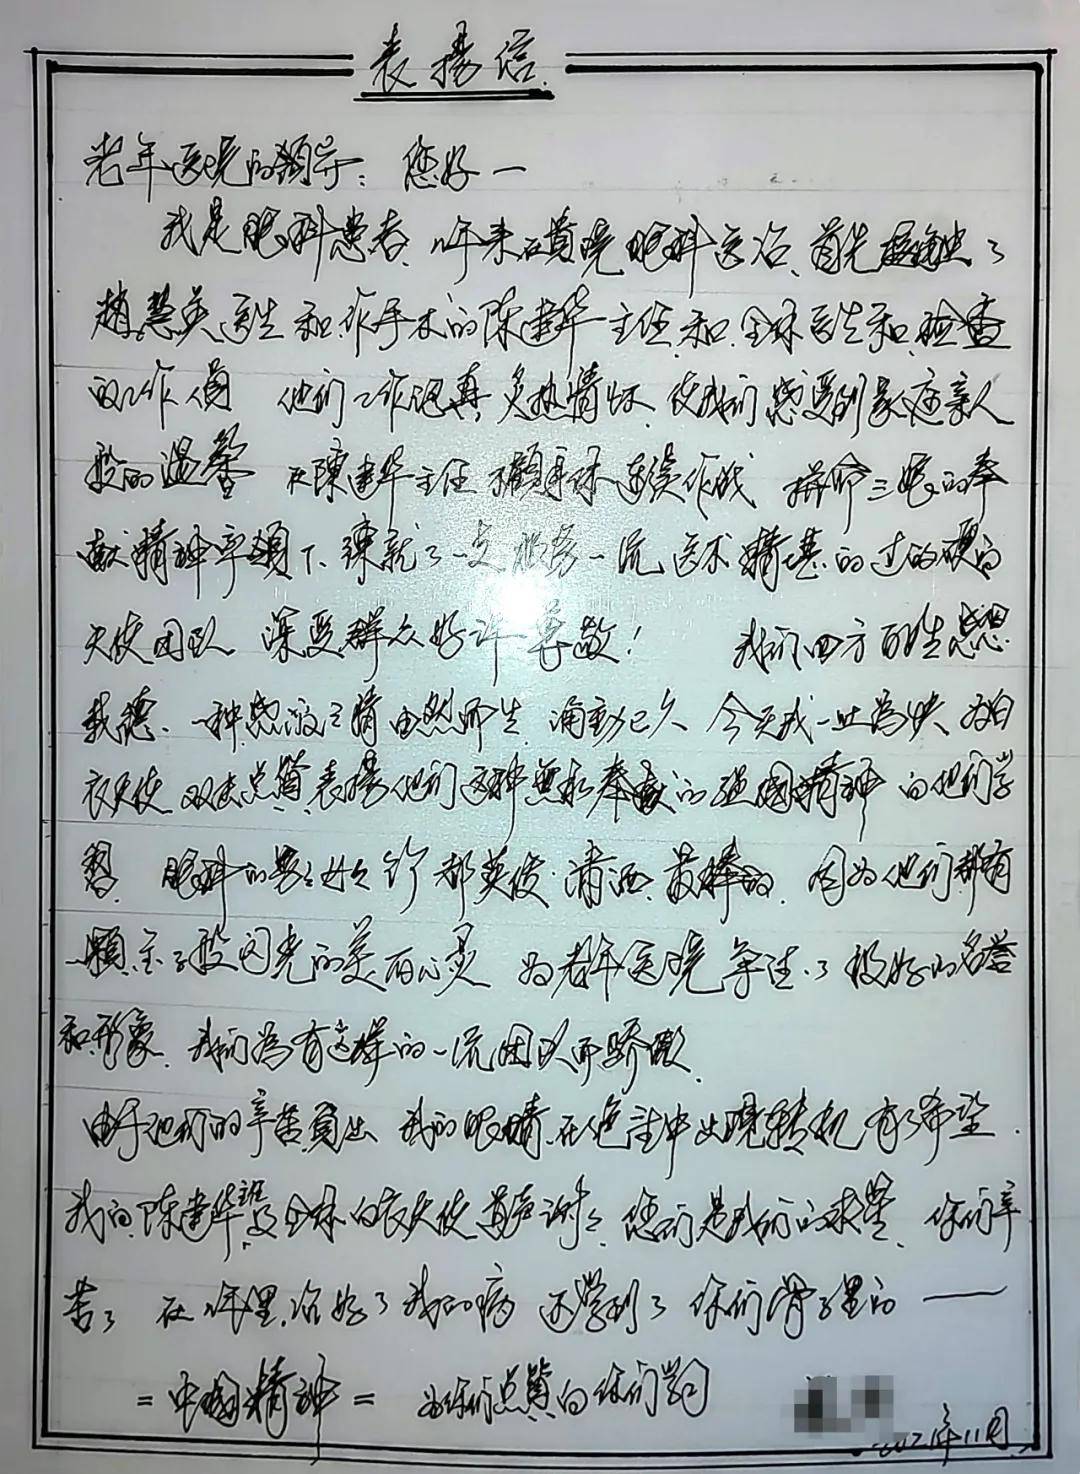 表揚信
老年医院的领导：您好一
我是眼科患者，几年来在貴院眼科医治，首先接触了
趙慧英医生和作手术的陈建华主任，和全体医生和检查
的工作人員 他们工作认真，火热情怀，使我们感受到家庭亲人
般的温馨 在陳建华主任不顧身体连续作战 拼命三娘的奉
献精神率領下，練就了一支服务一流 医术精湛的过的硬的
天使团队 深受群众好评尊敬！ 我们四方百姓感恩
戴德、一种感激之情由然而生 涌動已久 今天我一吐為快 為白
衣天使 双击点贊 表揚他们这种無私奉献的强國精神 向他们学
習 眼科的男男女女 个个都英俊 潇洒 最棒的 因为他们都有
一顆金子般闪光的美丽心灵 为老年医院争注了极好的名誉
和形象，我们為有这样的一流团队而骄傲
由于他们的辛苦負出 我的眼睛在绝望中出現转机 有了希望
我向陈建华主任及全体白衣天使 首声谢谢 您们是我们的救星 你们辛
苦了 在几年里，治好了我的病 还学到了你们骨子里的——
=中國精神= 为你们点贊向你们学习
年11月